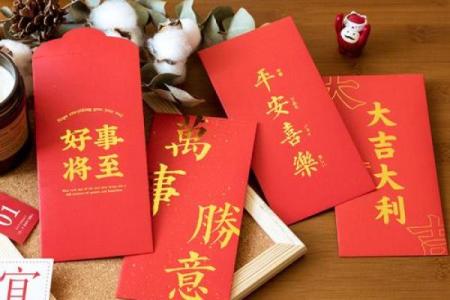 Hope everything goes your way
好事
将至
萬事
勝意
平安喜樂
大吉大利
大
吉
01
宜